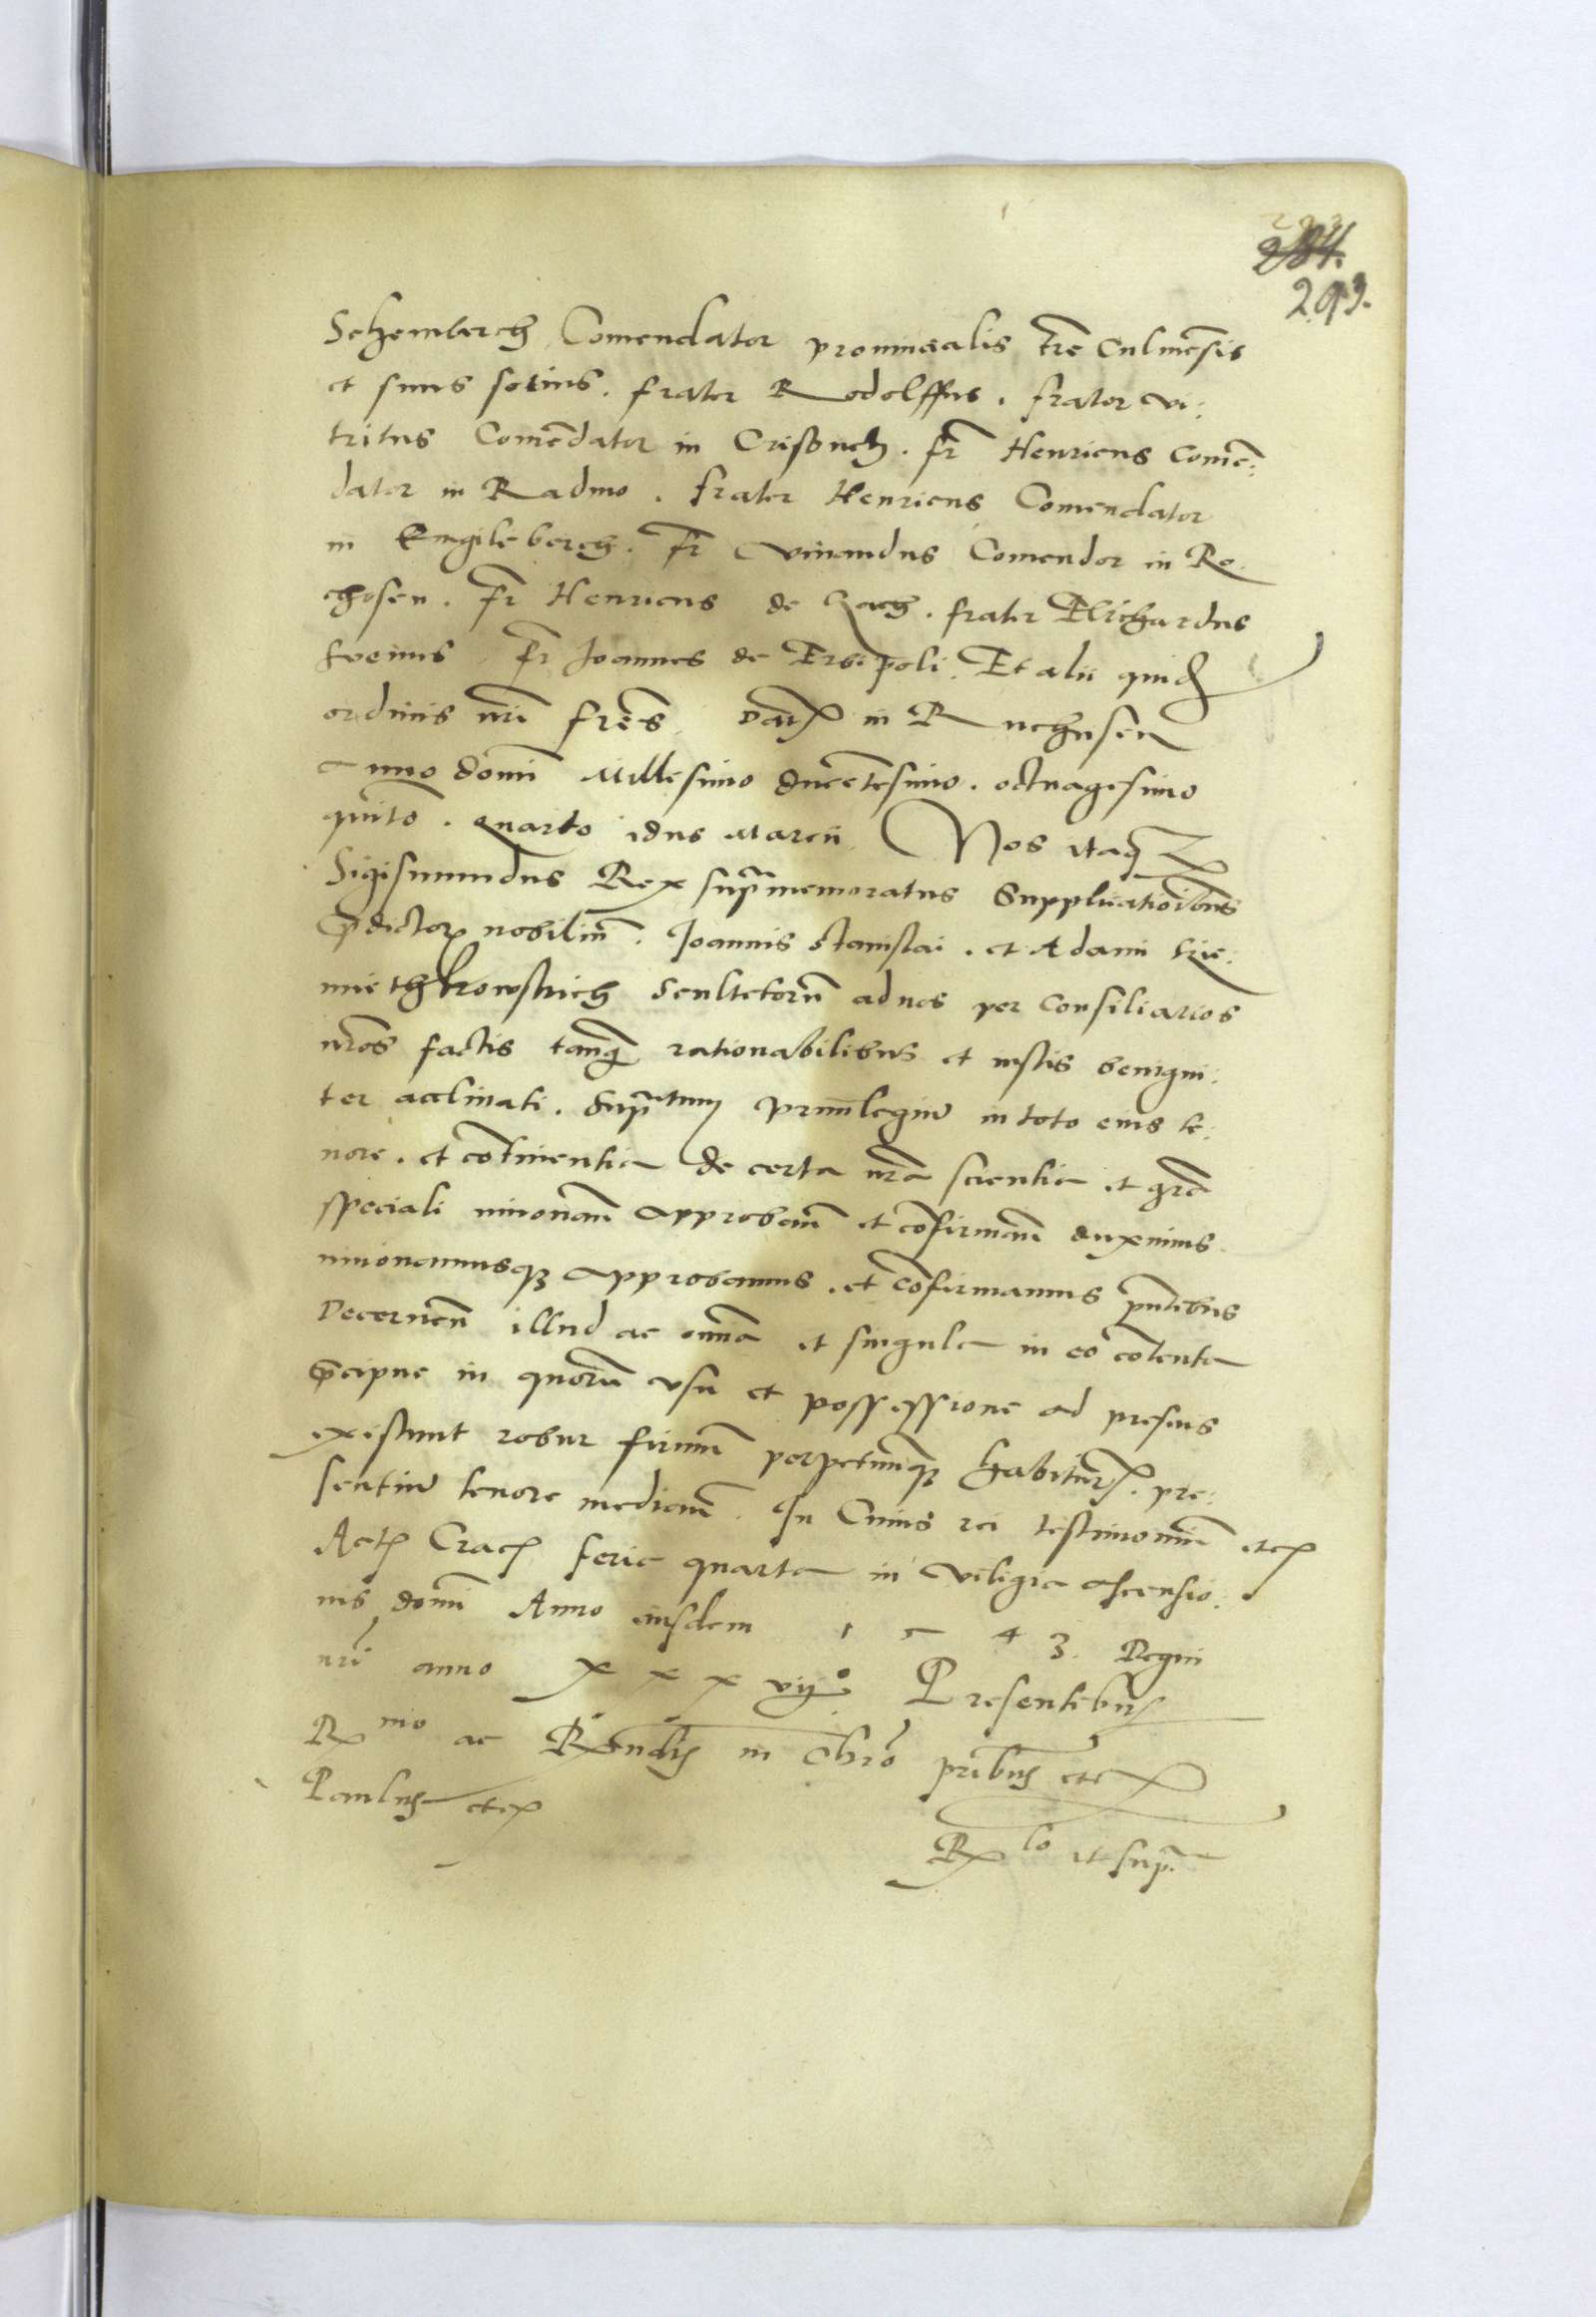 223
284.
293.
Schemberch Comendator prouincialis tre Culmēsis
et suus sotius . frater Rodolffus . frater vi:
tritus Comēdator in Crisbuch . fr Henricus Comē:
dator in Radino . frater Henricus Comendator
in Engileberch . fr vinandus Comendor in Re
chosen . fr Henricus de Zach . frater Elichardus
fr Joannes de Erbipoli . Et alii quid
ordinis nri frēs . Dat in Ruchusen
Anno domī Millesimo ducētesimo . octuagesimo
quīto . quarto idus Marcii Nos itaq
Sigismundus Rex supmemoratus Supplicatiōibus
p̄dictor nobiliū . Joannis Stanislai . et Adami trie:
miethkowskich Scultetorū ad nos per Consiliarios
nros factis tanq̄ rationabilibus et iustis benigni:
ter acclinati . Sup tum priuilegiū in toto eius te:
nore . et cōtinentia de certa nra scientia et gra
speciali innouanđ approbanđ et cōfirmanđ duximus
innouamusq approbamus . et cōfirmamus pntibus
Decernen illud ac omīa et singula in eo cōtenta
p̄cipue in quorū vsu et possessione ad presens
existunt robur firmū perpetuūq habitur . pre:
sentiū tenore medianī . In Cuius rei testimoniū etc
Act Crac feria quarta in vigilia ascensio:
nis domī Anno eiusdem 1 5 4 3 . Regni
nri anno xxxvij° Presentibus
Rmo ac Rendis in Chro pribus etc
Paulus etc
Rlo ut sup